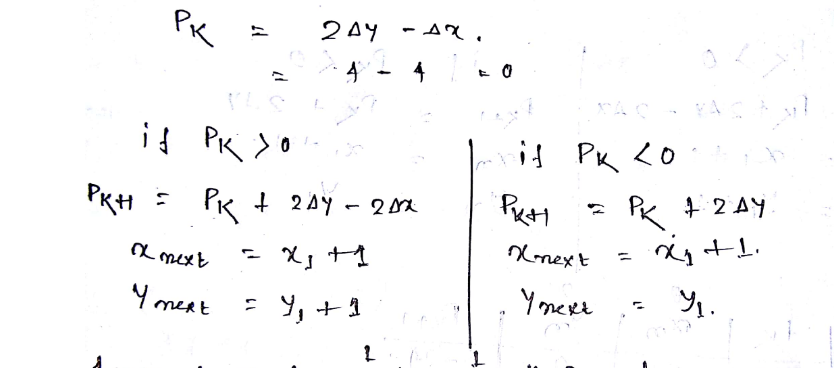 PK = 2Δy - Δx.
= 4 - 4 = 0
if PK >0
PK+1 = PK + 2Δy - 2Δx
xnext = x1 +1
ynext = y1 + 1
if PK <0
PK+1 = PK + 2Δy
xnext = x1 +1.
ynext = y1.